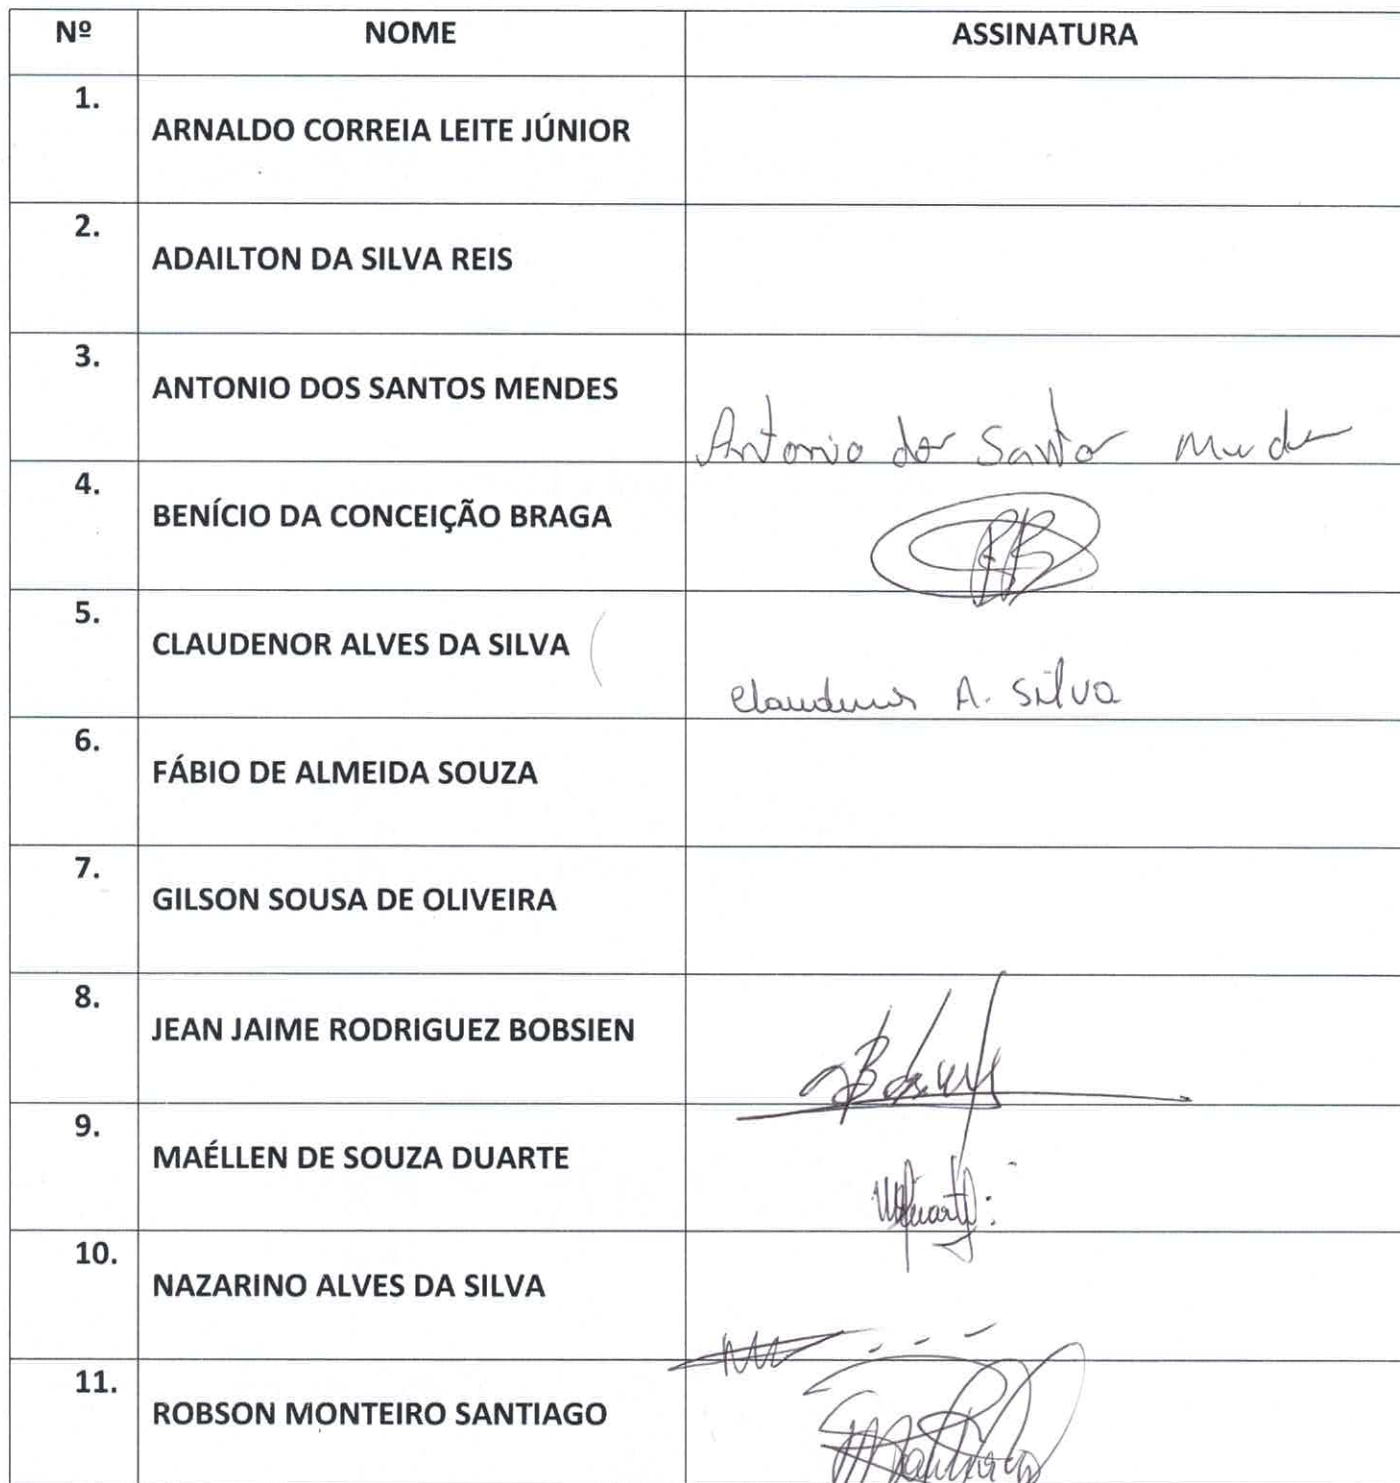 Nº NOME ASSINATURA
1. ARNALDO CORREIA LEITE JÚNIOR
2. ADAILTON DA SILVA REIS
3. ANTONIO DOS SANTOS MENDES
Antonio dos Santos
4. BENÍCIO DA CONCEIÇÃO BRAGA
5. CLAUDENOR ALVES DA SILVA
A. Silva
6. FÁBIO DE ALMEIDA SOUZA
7. GILSON SOUSA DE OLIVEIRA
8. JEAN JAIME RODRIGUEZ BOBSIEN
9. MAÉLLEN DE SOUZA DUARTE
10. NAZARINO ALVES DA SILVA
11. ROBSON MONTEIRO SANTIAGO